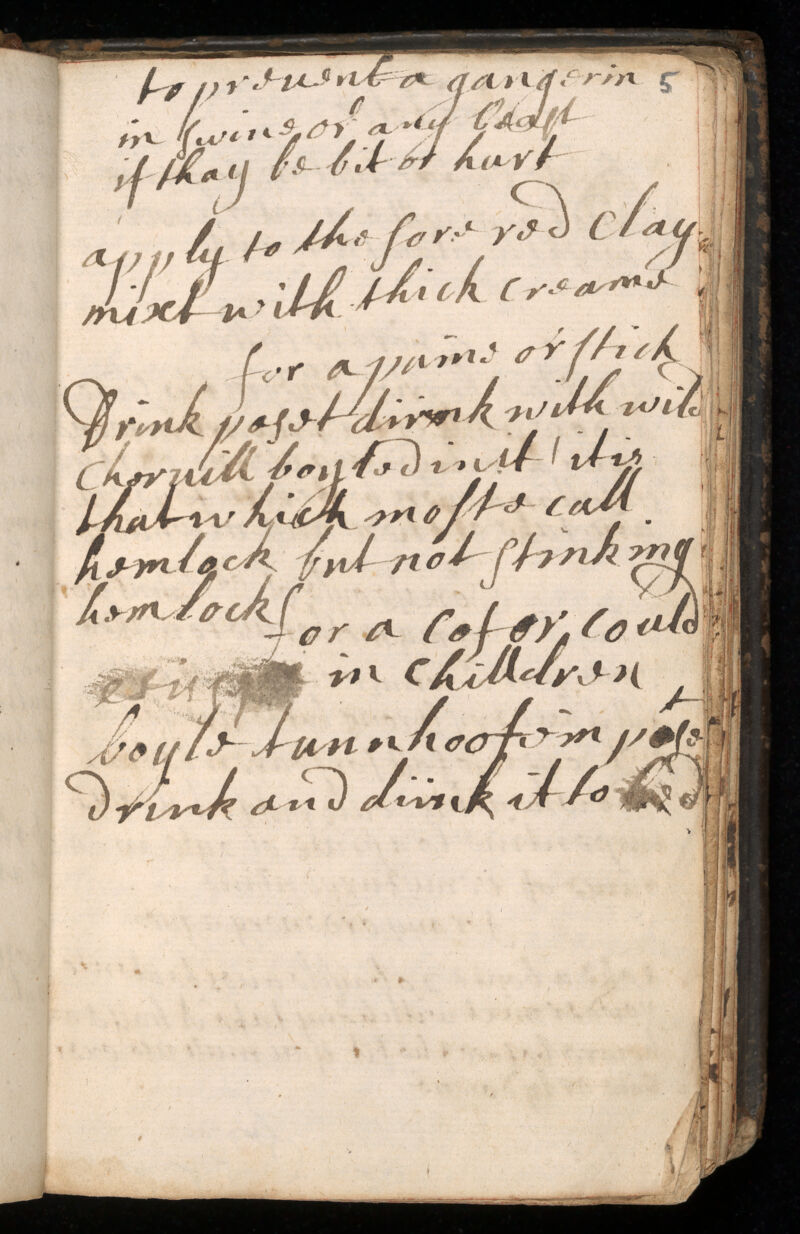 to preuent a gangerin 5
in swine or any beast
if thay be bit or hurt
apply to the sore red Clay
mixt with thick creame
for a paine or stich
Drink poset dirink with wild
Cheruill boyled in it it is
that which moste call
hemlock but not stinking
hemlock
for a cof or could
in Chilldren
boyle tunnhoofe in poset
drink and diink it to bed